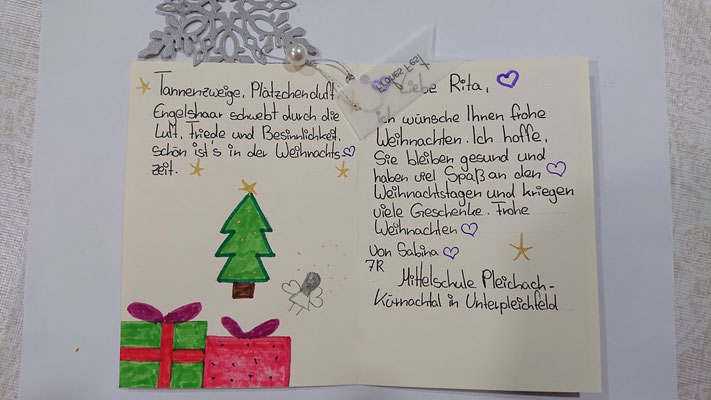 Tannenzweige, Plätzchenduft
Engelshaar schwebt durch die
Luft. Friede und Besinnlichkeit,
schön ist's in der Weihnachts
zeit.
Liebe Rita,
ich wünsche Ihnen frohe
Weihnachten. Ich hoffe,
Sie bleiben gesund und
haben viel Spaß an den
Weihnachtstagen und kriegen
viele Geschenke. Frohe
Weihnachten
von Sabina
7R
Mittelschule Pleichach-
Kürnachtal in Unterpleichfeld